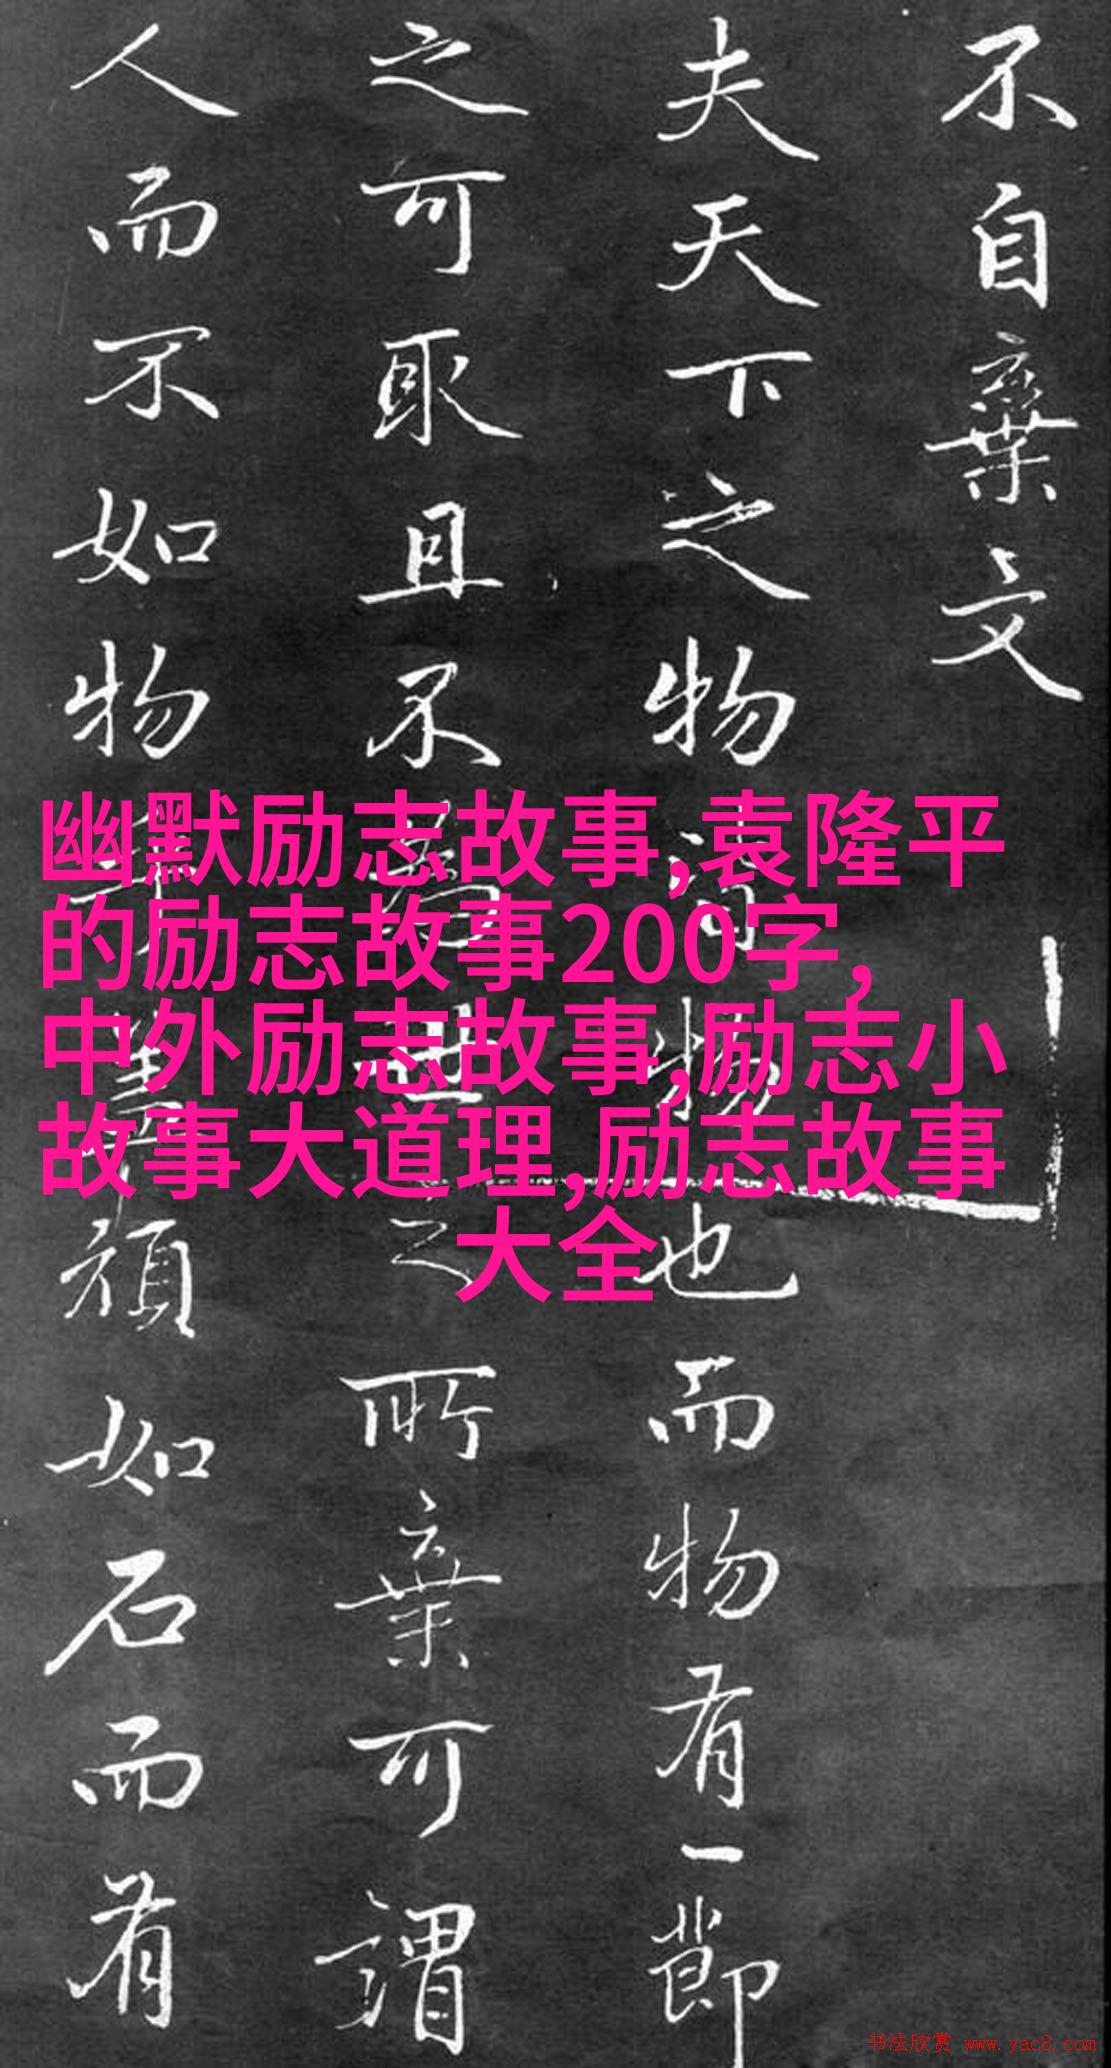 不自棄文
夫天下之物皆物也而物有一節
之可取且不為世之所棄可謂
人而不如物乎蓋頑如石而有
幽默励志故事,袁隆平
的励志故事200字,
中外励志故事,励志小
故事大道理,励志故事
大全
书法欣赏 www.yac8.com